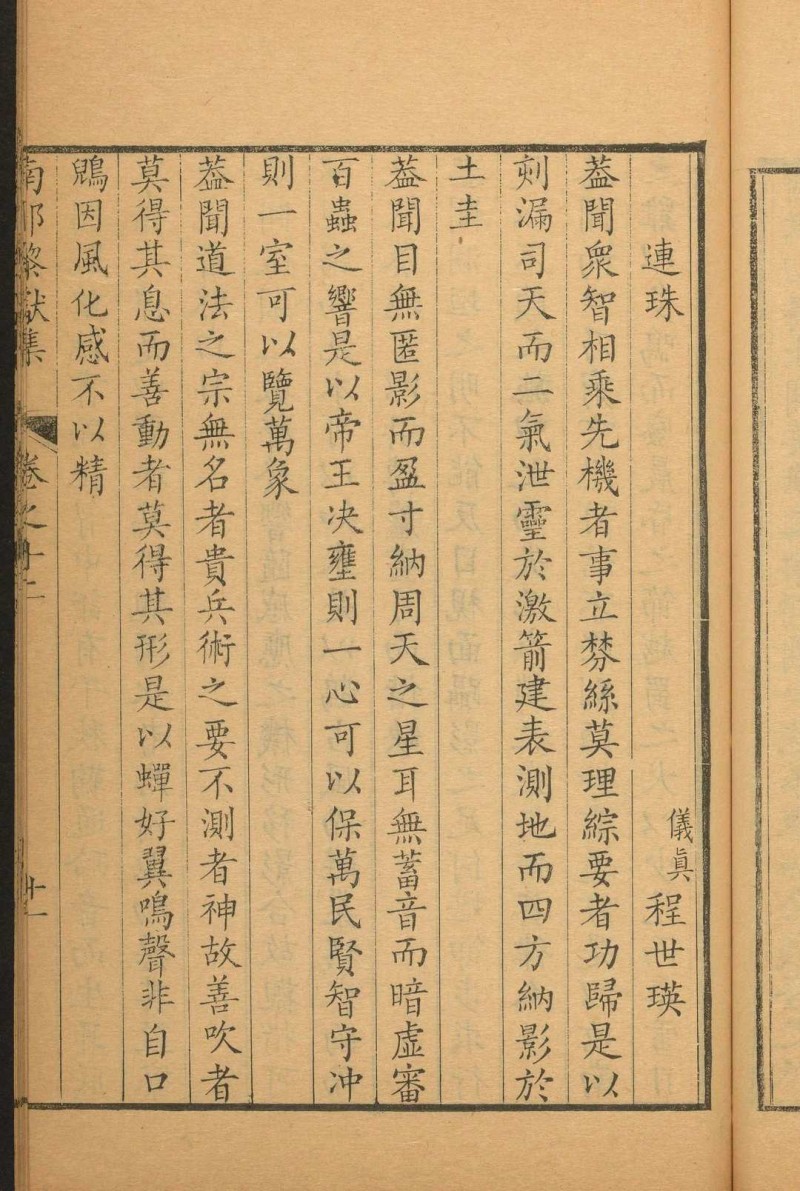 連珠　儀眞程世瑛
葢聞衆智相乘先機者事立棼絲莫理綜要者功歸是以
刻漏司天而二氣泄靈於激箭建表測地而四方納影於
土圭
葢聞目無匿影而盈寸納周天之星耳無蓄音而暗虛審
百蟲之響是以帝王决壅則一心可以保萬民賢智守冲
則一室可以覽萬象
葢聞道法之宗無名者貴兵術之要不測者神故善吹者
莫得其息而善動者莫得其形是以蟬好翼鳴聲非自口
鴟因風化感不以精
南邦黎獻集　卷之十二　十一